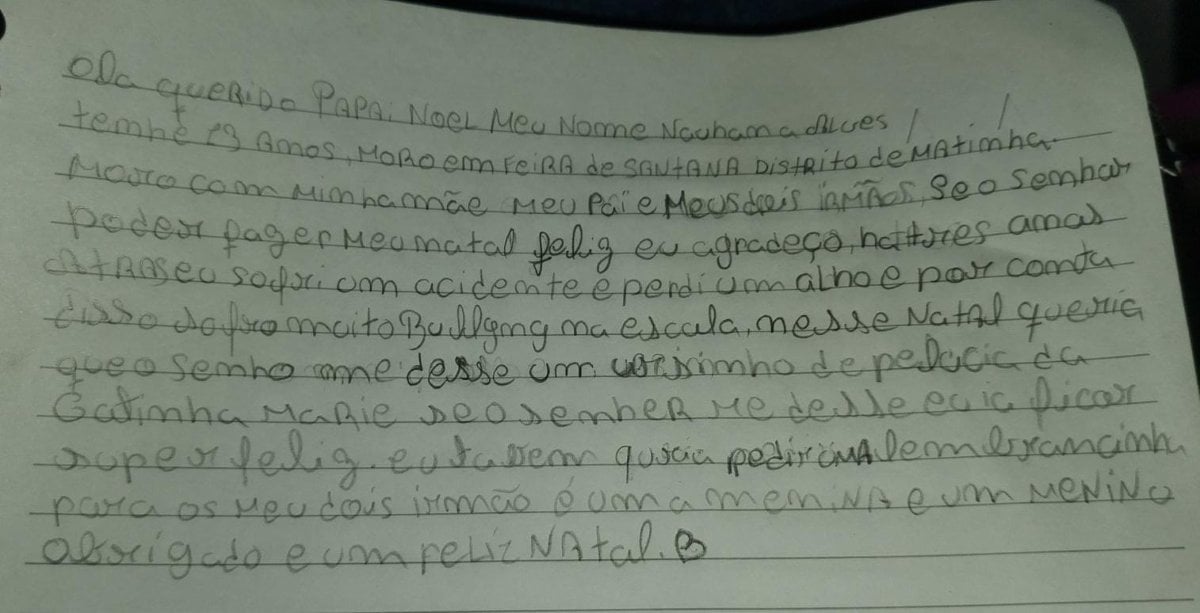 Ola queRido PAPAi NoeL Meu Nome Nauhama alves
temhe 13 Amos, MoRo em FeiRA de SANtANA DIStRito de MAtimha.
Moro com Minha mãe Meu Pai e Meus dois iRMÃos, se o semhor
poder fager Meu matal felig eu agradeço, há tres amos
AtRAS eu sofri um acidemte e perdi um olho e por conta
disso sofro muito Bullying ma escola, messe NatAl queria
que o semho me desse um ursimho de pelucia da
Gatimha MaRie se o semheR Me desse eu ia ficar
super felig. eu tabem queria pedir uMA lembramcimha
para os Meu dois irmão é uma meniNA e um MeNiNo
obrigado e um FeLiz NAtal.